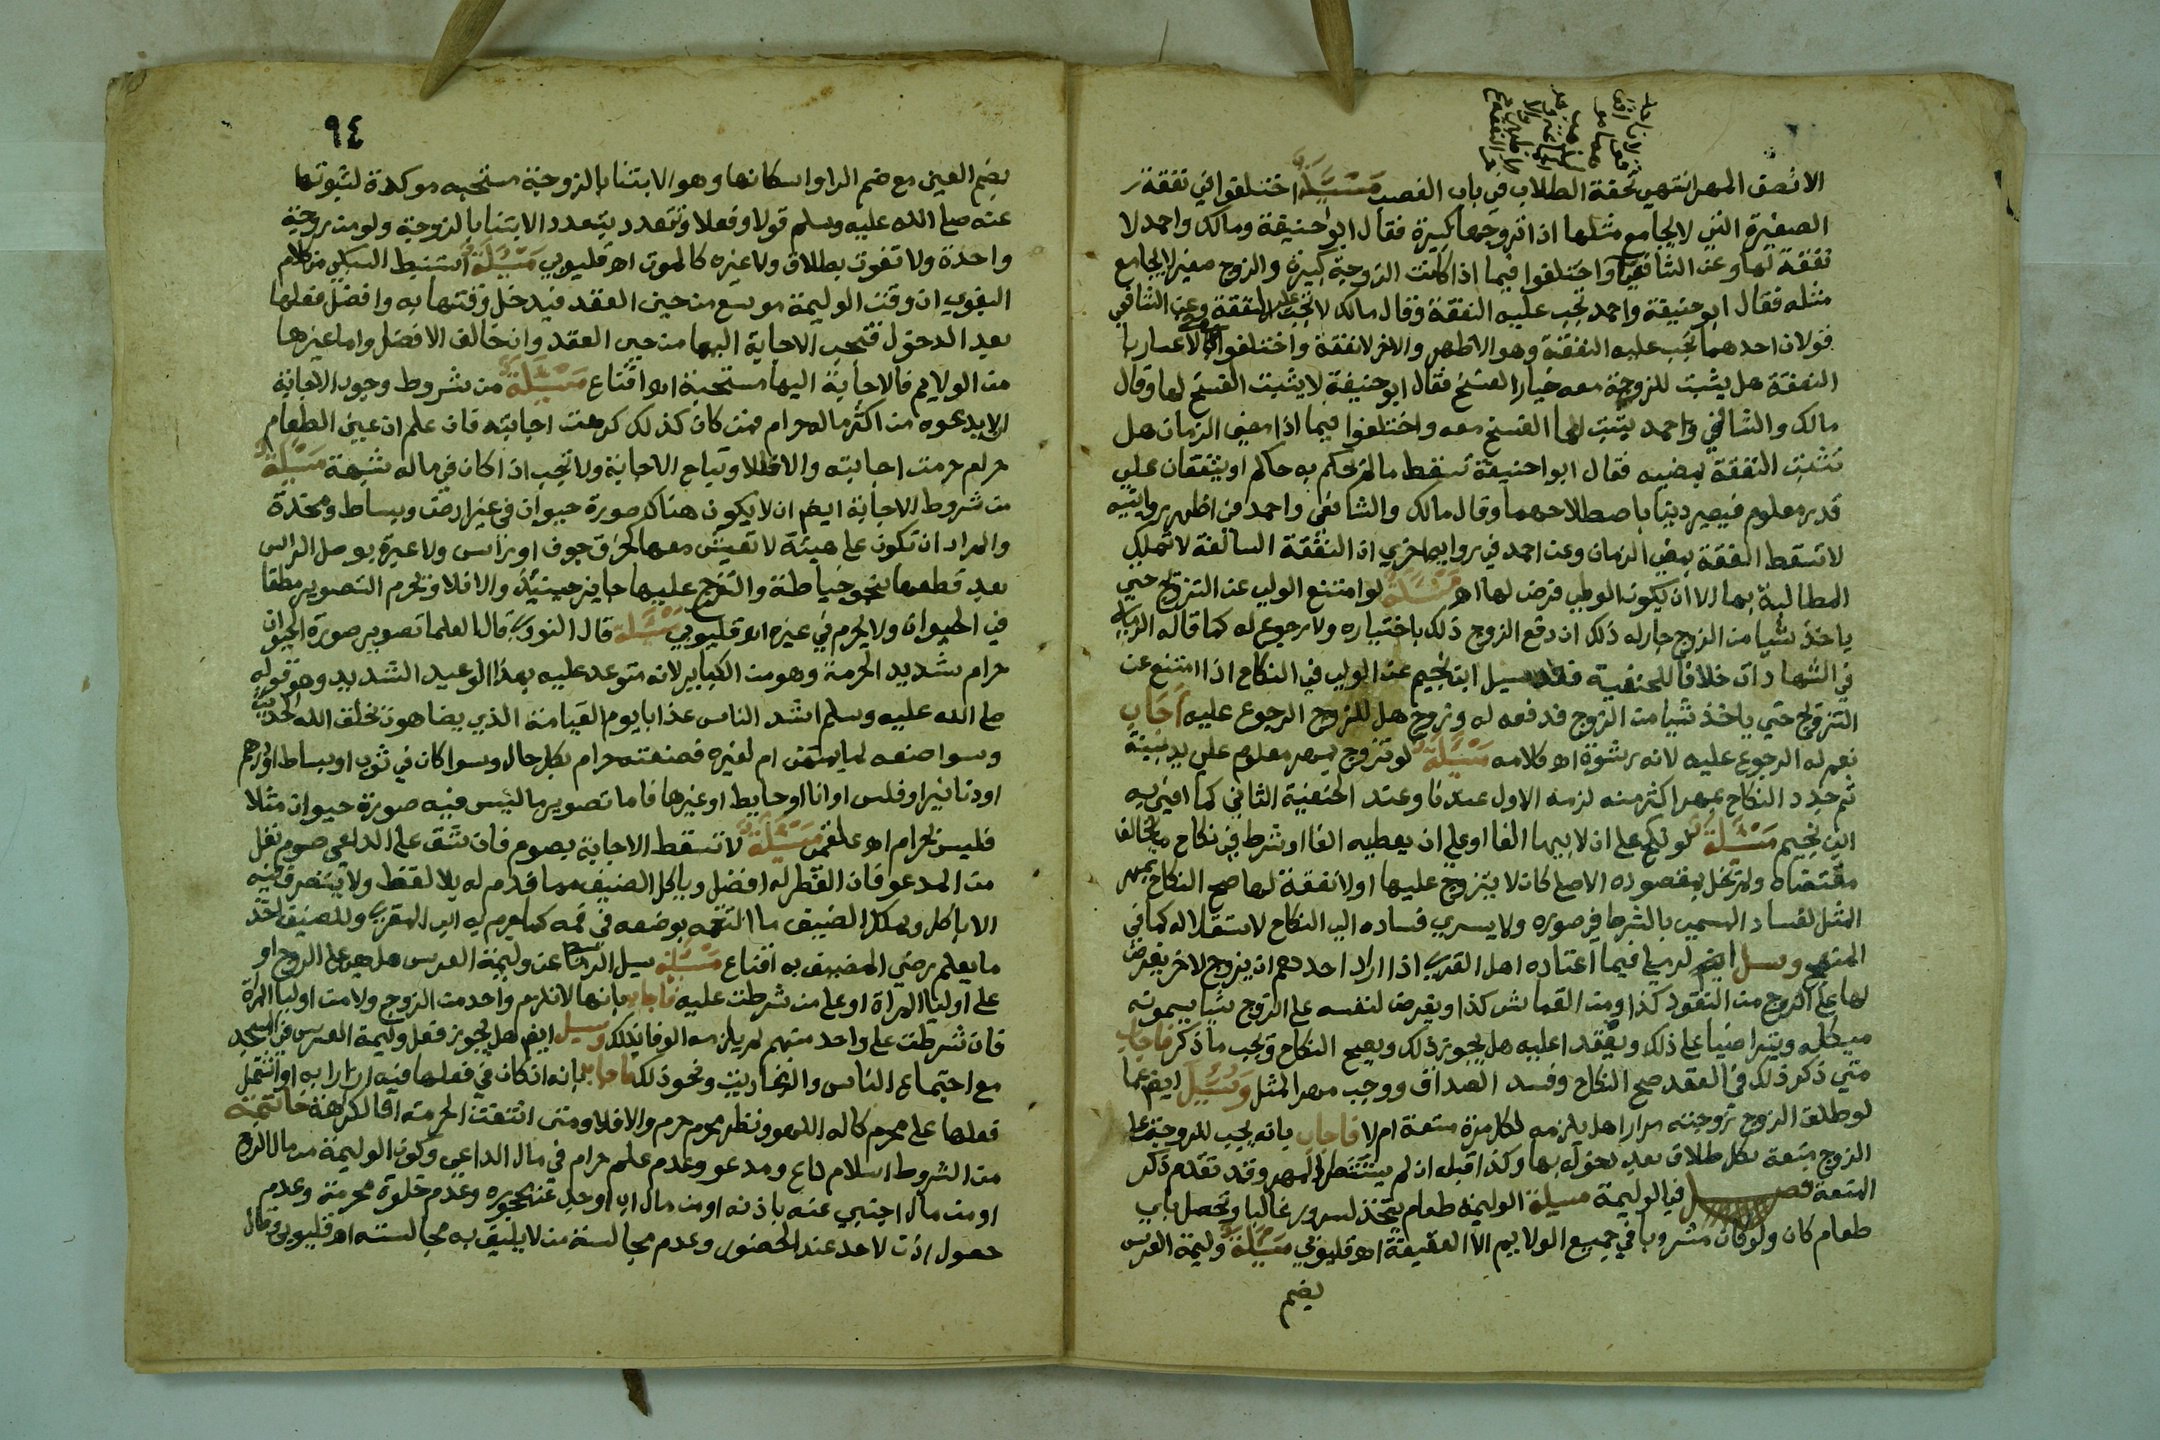 الا نصف المهر انتهى تحفة الطلاب في باب الغصب مسئلة اختلفوا في نفقة
الصغيرة التي لا يجامع مثلها اذا تزوجها كبيرة فقال ابو حنيفة ومالك واحمد لا
نفقة لها وعن الشافعي واختلفوا فيما اذا كانت الزوجة كبيرة والزوج صغير لا يجامع
مثله فقال ابو حنيفة واحمد تجب عليه النفقة وقال مالك لا تجب عليه النفقة وعن الشافعي
قولان احدهما تجب عليه النفقة وهو الاظهر والاخر لا نفقة واختلفوا في الاعسار با
النفقة هل يثبت للزوجة معه خيار الفسخ فقال ابو حنيفة لا يثبت الفسخ لها وقال
مالك والشافعي واحمد يثبت لها الفسخ معه واختلفوا فيما اذا مضى الزمان هل
تثبت النفقة بمضيه فقال ابوا حنيفة تسقط مالم يحكم به حاكم او يتفقان على
قدر معلوم فيصير دينا باصطلاحهما وقال مالك والشافعي واحمد في اظهر روايتيه
لا تسقط النفقة بمضي الزمان وعن احمد في رواية اخرى ان النفقة السالفة لا تملك
المطالبة بها الا ان يكون الولي فرض لها اهـ مسئلة لو امتنع الولي عن التزويج حتى
ياخذ شيا من الزوج جاز له ذلك ان دفع الزوج ذلك باختياره ولا رجوع له كما قاله الزيادي
في الشهادات خلافا للحنفية فقد سيل ابن نجيم عن الولي في النكاح اذا امتنع عن
التزويج حتي ياخذ شيا من الزوج فدفعه له وتزوج هل للزوج الرجوع عليه اجاب
نعم له الرجوع عليه لانه رشوة اهـ كلامه مسئلة لو تزوج بمهر معلوم على يد بينة
ثم جدد النكاح بمهر اكثر منه لزمه الاول عندنا وعند الحنفية الثاني كما افتى به
ابن نجيم مسئلة لو نكح على ان لابيها الفا او على ان يعطيه الفا او شرط في نكاح ما يخالف
مقتضاه ولم يخل بمقصوده الاصلي كان لا يتزوج عليها او لا نفقة لها صح النكاح بمهر
المثل لفساد المسمى بالشرط في صوره ولا يسري فساده الى النكاح لاستقلاله كما في
المنهج وسيل ايضا الرملي فيما اعتاده اهل القرى اذا اراد احدهم ان يزوج لاخر يفرض
لها على الزوج من النقود كذا ومن القماش كذا ويفرض لنفسه على الزوج شيا يسمونه
ميكله ويتراضيا على ذلك ويعقد اعليه هل يجوز ذلك ويصح النكاح ويجب ما ذكر فاجاب
متي ذكر ذلك في العقد صح النكاح وفسد الصداق ووجب مهر المثل وسيل ايضا عما
لو طلق الزوج زوجته مرارا هل يلزمه لكل مرة متعة ام لا فاجاب بانه يجب للزوجة على
الزوج متعة بكل طلاق بعد دخوله بها وكذا قبله ان لم يتشطر المهر وقد تقدم ذكر
المتعة فصل في الوليمة مسيلة الوليمة طعام يتخذ لسرور غالبا وتحصل باي
طعام كان ولو كان مشروبا في جميع الولايم الا العقيقة اهـ قليوبي مسئلة وليمة العرس
بضم
٩٤
بضم العين مع ضم الرا واسكانها وهو الابتنا بالزوجة مستحبه موكدة لثبوتها
عنه صلى الله عليه وسلم قولا وفعلا وتتعدد بتعدد الابتنا بالزوجة ولو من زوجة
واحدة ولا تفوت بطلاق ولا غيره كالموت اهـ قليوبي مسئلة استنبط السبكي من كلام
البغوي ان وقت الوليمة موسع من حين العقد فيدخل وقتها به وافضل فعلها
بعد الدخول فتجب الاجابة اليها من حين العقد وان خالف الافضل واما غيرها
من الولايم فالاجابة اليها مستحبة اهـ اقناع مسئلة من شروط وجوب الاجابة
ان لا يدعوه من اكثر ماله حرام فمن كان كذلك كرهت اجابته فان علم ان عين الطعام
حرام حرمت اجابته والا فلا وتباح الاجابة ولا تجب اذا كان في ماله شبهة مسئلة
من شروط الاجابة ايضا ان لا يكون هناك صورة حيوان في غير ارض وبساط ومخدة
والمراد ان تكون على هيئة لا تعيش معها لخرق جوف او راس ولا عبرة بوصل الراس
بعد قطعها بنحو خياطة والتفرج عليها جايز حينيذ والا فلا ويحرم التصوير مطلقا
في الحيوان ولا يحرم في غيره اهـ قليوبي مسئلة قال النووي قال العلما تصوير صورة الحيوان
حرام شديد الحرمة وهو من الكباير لانه متوعد عليه بهذا الوعيد الشديد وهو قوله
صلى الله عليه وسلم اشد الناس عذابا يوم القيامة الذي يضاهون بخلق الله الحديث
وسوا صنعه لما يمتهن ام لغيره فصنعته حرام بكل حال وسوا كان في ثوب او بساط او درهم
او دنانير او فلس او انا او حايط او غيرها فاما تصوير ما ليس فيه صورة حيوان مثلا
فليس بحرام اهـ علقمى مسئلة لا تسقط الاجابة بصوم فان شق على الداعي صوم نفل
من المدعو فان الفطر له افضل وياكل الضيف مما قدم له بلا لفظ ولا يتصرف فيه
الا باكل ويملك الضيف ما التقمه بوضعه في فمه كما جزم به ابن المقري وللضيف اخذ
ما يعلم رضى المضيف به اقناع مسئلة سيل عن وليمة العرس هل هي على الزوج او
على اوليا المراة او على من شرطت عليه فاجاب بانها لا تلزم واحد من الزوج ولا من اوليا المراة
فان شرطت على واحد منهم لم يلزمه الوفا بذلك وسيل ايضا هل يجوز فعل وليمة العرس في المسجد
مع اجتماع الناس ونحو ذلك فاجاب بانه ان كان في فعلها فيه ازرا به او اشتمل
فعلها على محرم كاله اللهو ونظر محرم حرم والا فلا ومتى انتفت الحرمة فالكراهة خاتمة
من الشروط اسلام داع ومدعو وعدم علم حرام في مال الداعي وكون الوليمة من مال الزوج
او من مال اجنبي عنه باذنه او من مال اب او جد عن محجوره وعدم خلوة محرمة وعدم
حصول اذى لاحد عند الحضور وعدم مجالسة من لا يليق به مجالسته اهـ قليوبي قال